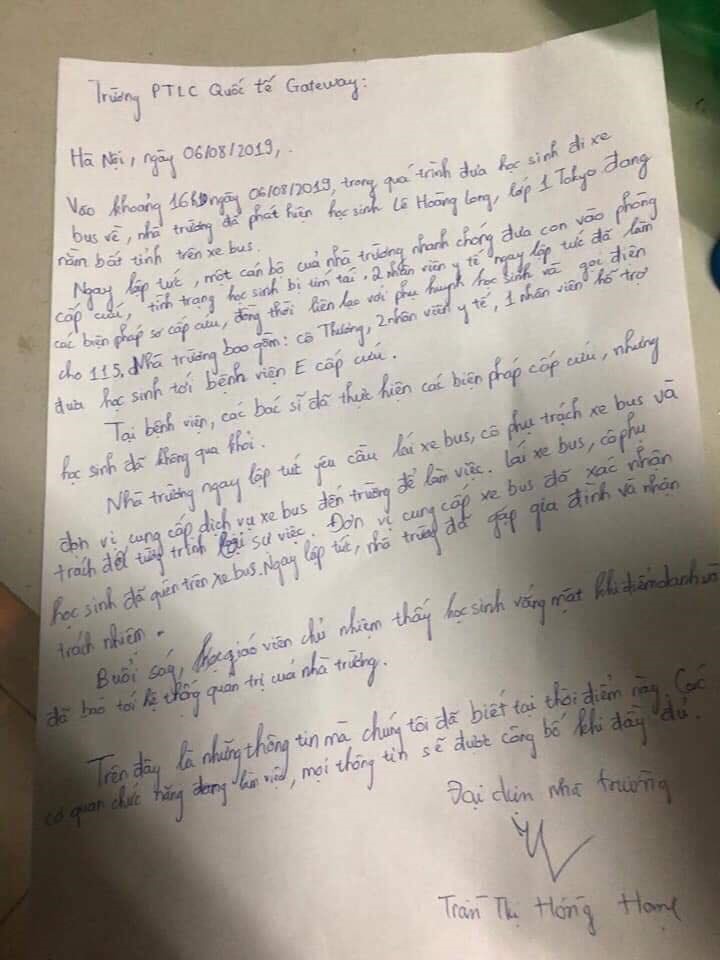 Trường PTLC Quốc tế Gateway:
Hà Nội, ngày 06/08/2019,.
Vào khoảng 16h ngày 06/08/2019, trong quá trình đưa học sinh đi xe
bus về, nhà trường đã phát hiện học sinh Lê Hoàng Long, lớp 1 Tokyo đang
nằm bất tỉnh trên xe bus.
Ngay lập tức, một cán bộ của nhà trường nhanh chóng đưa con vào phòng
cấp cứu, tình trạng học sinh bị tím tái. 2 nhân viên y tế ngay lập tức đã làm
các biện pháp sơ cấp cứu, đồng thời liên lạc với phụ huynh học sinh và gọi điện
cho 115. Nhà trường bao gồm: cô Thương, 2 nhân viên y tế, 1 nhân viên hỗ trợ
đưa học sinh tới bệnh viện E cấp cứu.
Tại bệnh viện, các bác sĩ đã thực hiện các biện pháp cấp cứu, nhưng
học sinh đã không qua khỏi.
Nhà trường ngay lập tức yêu cầu lái xe bus, cô phụ trách xe bus và
đơn vị cung cấp dịch vụ xe bus đến trường để làm việc. Lái xe bus, cô phụ
trách để tường trình lại sự việc. Đơn vị cung cấp xe bus đã xác nhận
học sinh đã quên trên xe bus. Ngay lập tức, nhà trường đã gặp gia đình và nhận
trách nhiệm.
Buổi sáng, giáo viên chủ nhiệm thấy học sinh vắng mặt khi điểm danh và
đã báo tới hệ thống quan trị cuả nhà trường.
Trên đây là những thông tin mà chúng tôi đã biết tại thời điểm này. Các
cơ quan chức năng đang làm việc, mọi thông tin sẽ được công bố khi đầy đủ.
Đại diện nhà trường
Trần Thị Hồng Hạnh